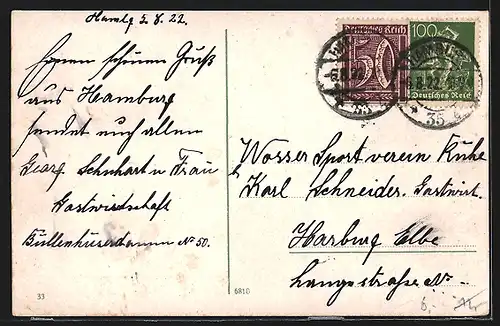 Hambg 5.8.22.
Einen schönen Gruß
aus Hamburg
sendet euch allen
Georg Schuhart u Frau
Gastwirtschaft
Bullenhuserdamm No 50.
Deutsches Reich
50
100
Deutsches Reich
HAMBURG
35
HAMBURG
35
Wasser Sport verein
Karl Schneider. Gastwirt.
Harburg Elbe
Langestraße No
33
6810